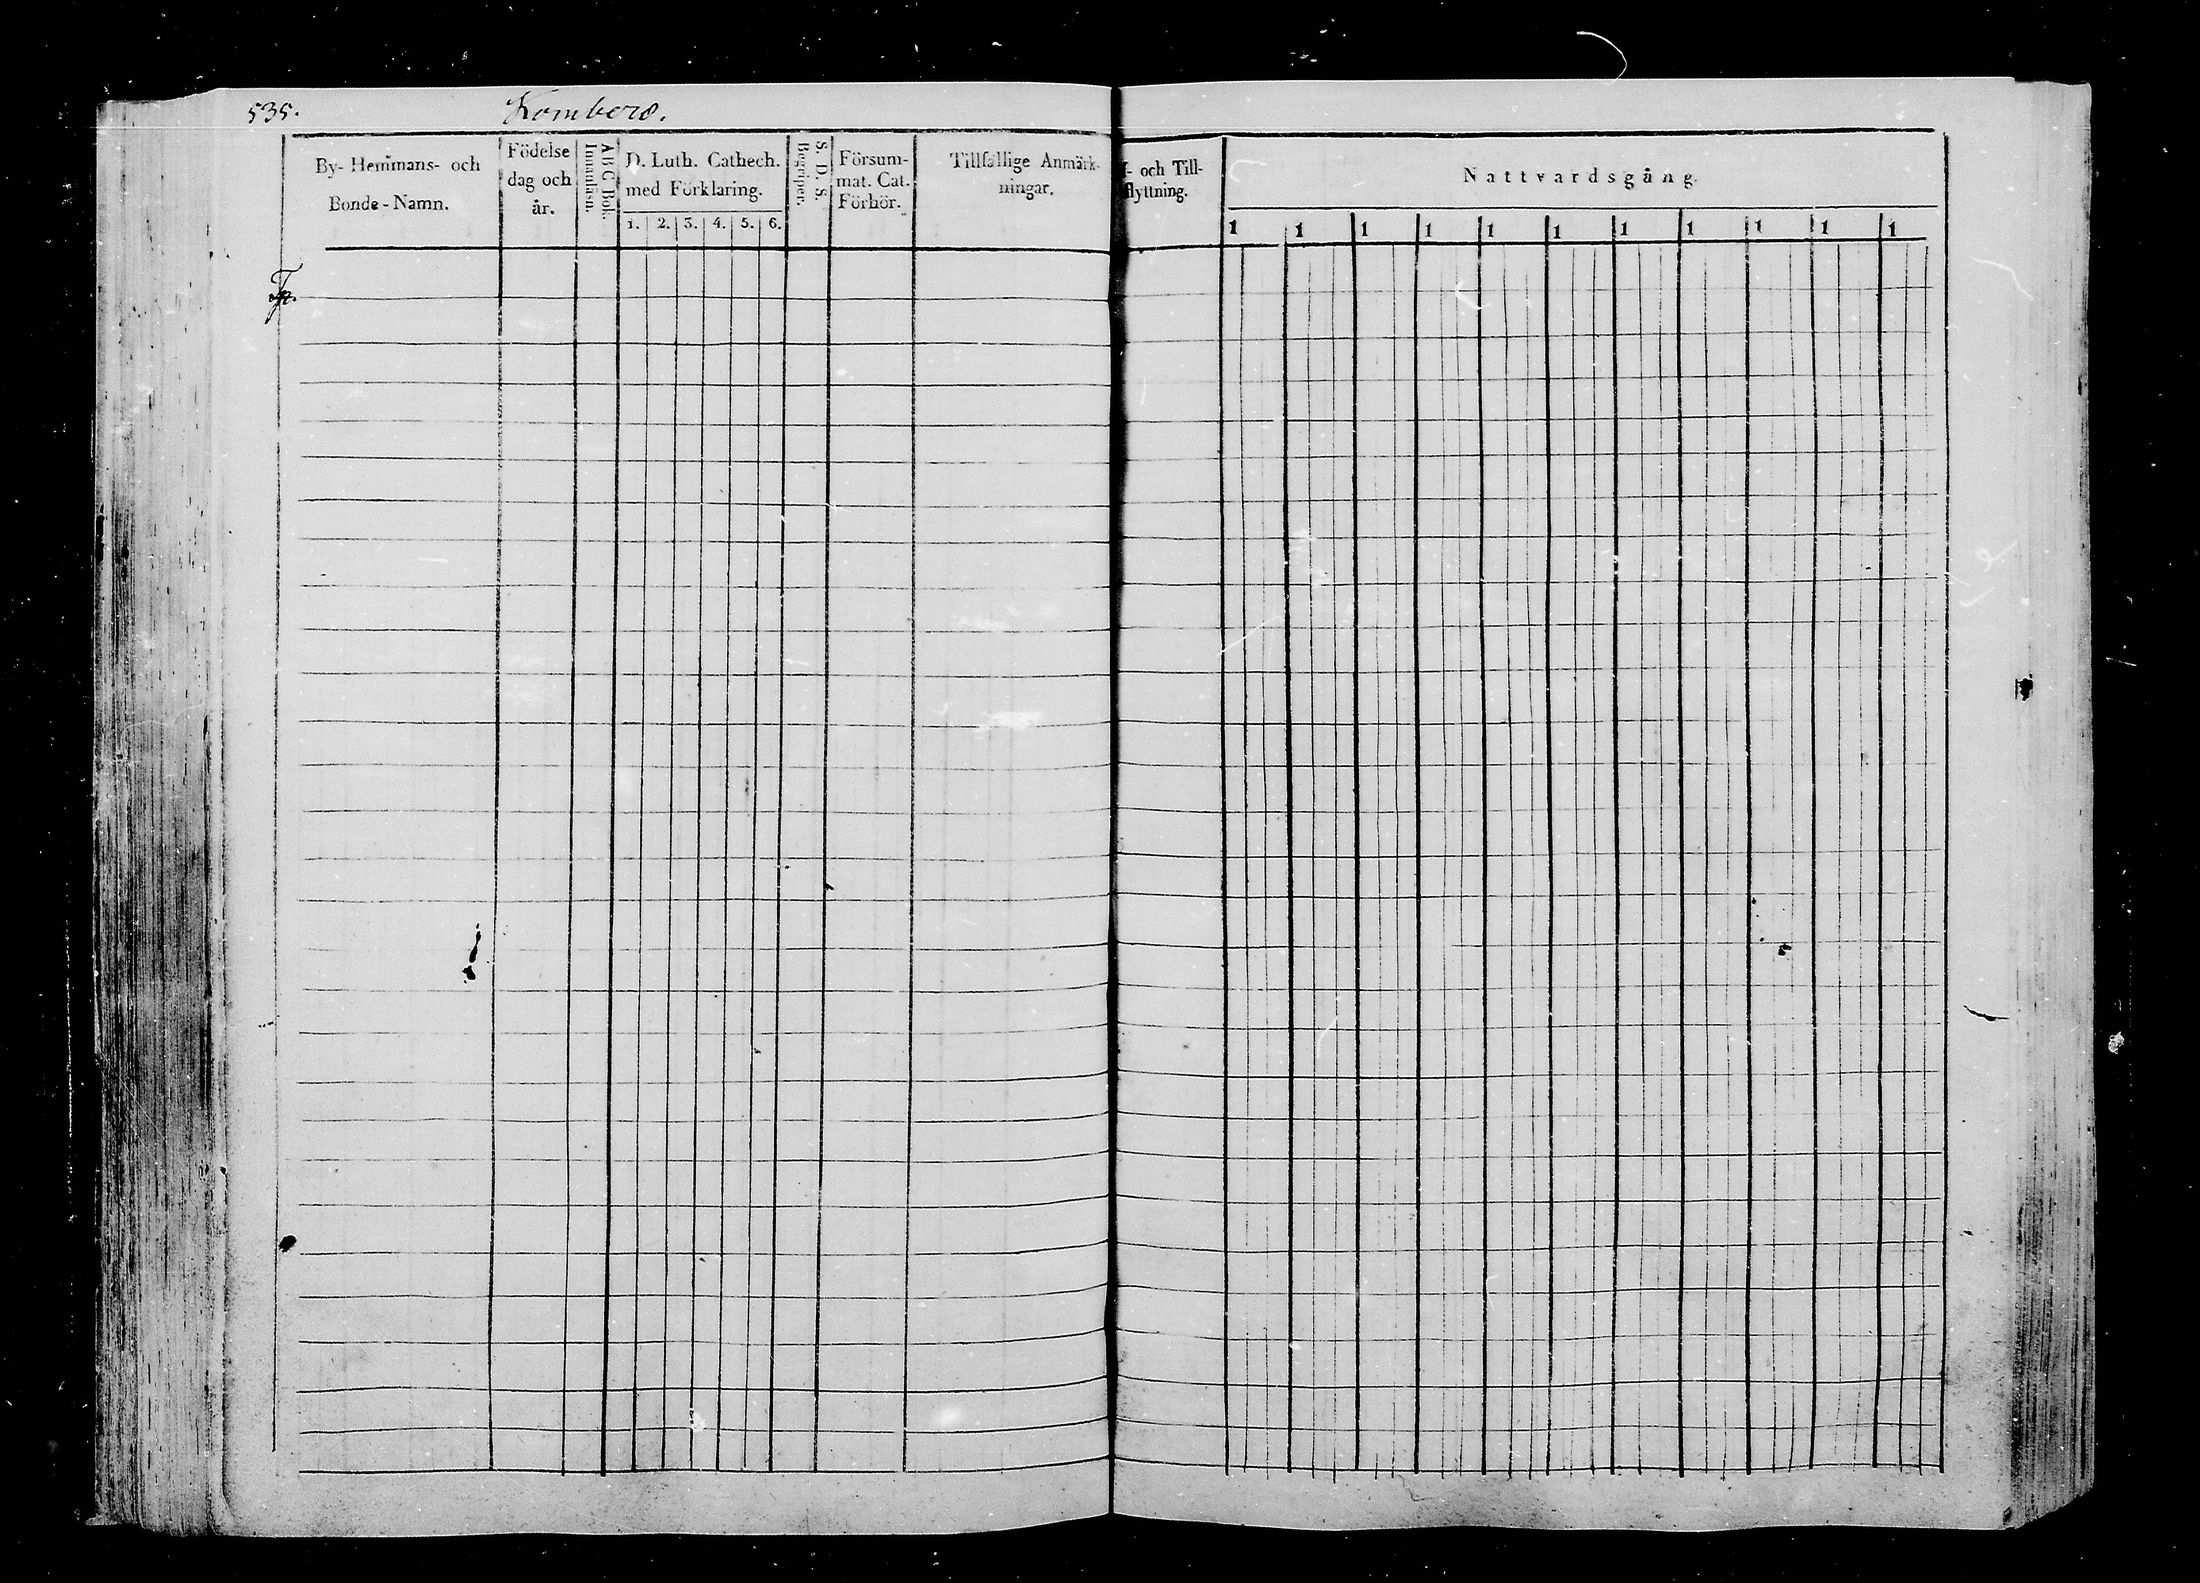 535. Kombero.
By- Hemmans- och
Bonde-Namn.
Födelse
dag och
år.
ABC Bok.
Innanläsn.
D. Luth. Cathech.
med Förklaring.
1. 2. 3. 4. 5. 6.
S. D. S.
Begriper.
Försum-
mat. Cat.
Förhör.
Tillfällige Anmärk-
ningar.
- och Till-
flyttning.
Nattvardsgång.
1 1 1 1 1 1 1 1 1 1 1